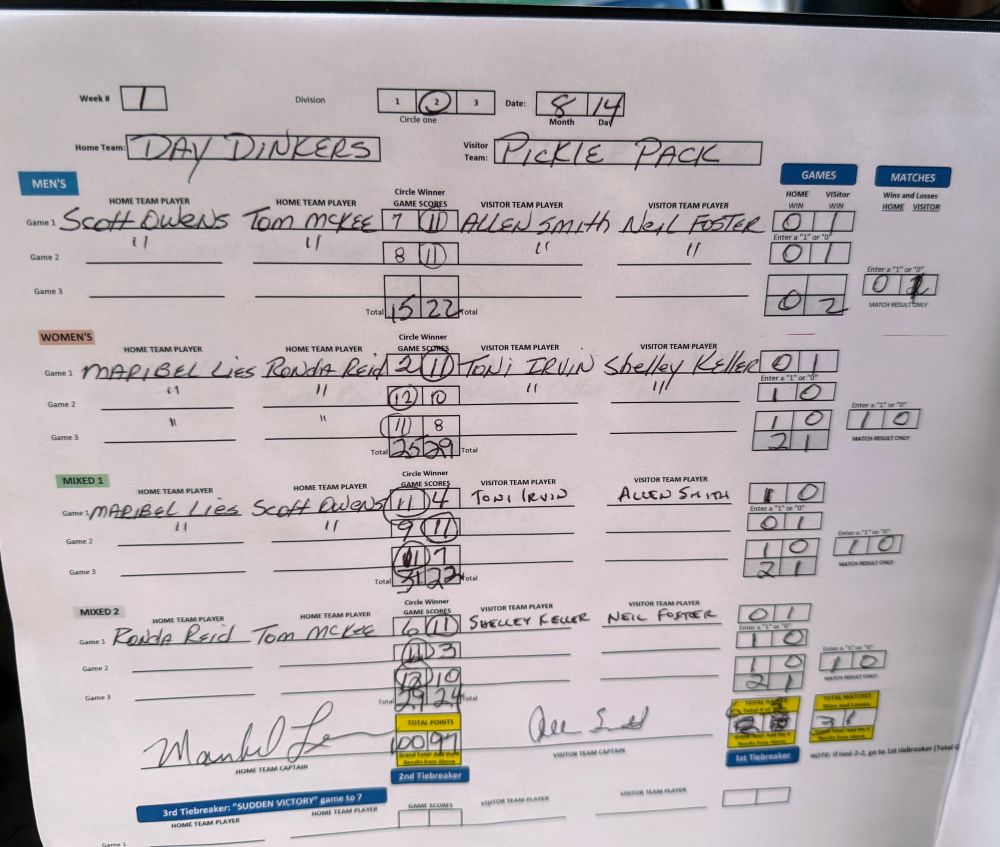 Week # 1 Division 1 2 3 Date: 8 14
Circle one Month Day
Home Team: DAY DINKERS Visitor Team: PICKLE PACK
MEN'S GAMES MATCHES
HOME TEAM PLAYER HOME TEAM PLAYER Circle Winner GAME SCORES VISITOR TEAM PLAYER VISITOR TEAM PLAYER HOME WIN Visitor WIN Wins and Losses HOME VISITOR
Game 1 Scott Owens Tom McKee 7 11 ALLEN Smith Neil FOSTER 0 1
Enter a "1" or "0"
Game 2 " " 8 11 " " 0 1
Enter a "1" or "0"
Game 3 0
MATCH RESULT ONLY
Total 15 22 Total 0 2
WOMEN'S Circle Winner
HOME TEAM PLAYER HOME TEAM PLAYER GAME SCORES VISITOR TEAM PLAYER VISITOR TEAM PLAYER
Game 1 MARIBEL Lies RONDA Reid 2 11 TONI IRVIN Shelley Keller 0 1
Enter a "1" or "0"
Game 2 " " 12 10 " " 1 0
Enter a "1" or "0"
Game 3 " " 11 8 1 0 1 0
MATCH RESULT ONLY
Total 25 29 Total 2 1
MIXED 1 Circle Winner
HOME TEAM PLAYER HOME TEAM PLAYER GAME SCORES VISITOR TEAM PLAYER VISITOR TEAM PLAYER
Game 1 MARIBEL Lies Scott Owens 11 4 TONI IRVIN ALLEN SMITH 1 0
Enter a "1" or "0"
Game 2 " " 9 11 0 1
Enter a "1" or "0"
Game 3 11 7 1 0 1 0
MATCH RESULT ONLY
Total 31 22 Total 2 1
MIXED 2 Circle Winner
HOME TEAM PLAYER HOME TEAM PLAYER GAME SCORES VISITOR TEAM PLAYER VISITOR TEAM PLAYER
Game 1 RONDA Reid Tom McKee 6 11 SHELLEY KELLER NEIL FOSTER 0 1
Enter a "1" or "0"
Game 2 11 3 1 0
Enter a "1" or "0"
Game 3 12 10 1 0 1 0
MATCH RESULT ONLY
Total 29 24 Total 2 1
TOTAL POINTS TOTAL GAMES TOTAL MATCHES
Wins and Losses
100 97 3 1
Results from Above
HOME TEAM CAPTAIN VISITOR TEAM CAPTAIN 1st Tiebreaker NOTE: If tied 2-2, go to 1st tiebreaker (Total G
2nd Tiebreaker
3rd Tiebreaker: "SUDDEN VICTORY" game to 7
HOME TEAM PLAYER HOME TEAM PLAYER GAME SCORES VISITOR TEAM PLAYER VISITOR TEAM PLAYER
Game 1